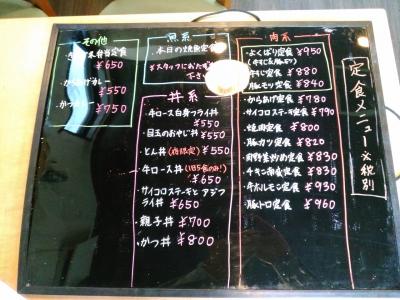 定食メニュー ※税別
肉系
・よくばり定食 ¥950
(牛すじ&豚モツ)
・牛すじ定食 ¥880
・豚モツ定食 ¥840
・からあげ定食 ¥780
・サイコロステーキ定食 ¥990
・焼肉定食 ¥800
・豚カツ定食 ¥820
・肉野菜炒め定食 ¥830
・チキン南蛮定食 ¥830
・牛ホルモン定食 ¥930
・豚トロ定食 ¥960
魚系
・本日の焼魚定食
※スタッフにおたずね
下さい
丼系
・牛ロース白身フライ丼
¥550
・目玉のおやじ丼 ¥550
・とん丼 (夜限定) ¥550
・牛ロース丼 (1日5食のみ!)
¥650
・サイコロステーキとアジフ
ライ丼 ¥650
・親子丼 ¥700
・かつ丼 ¥800
その他
弁当定食
¥650
・からあげカレー
¥550
・かつカレー
¥750